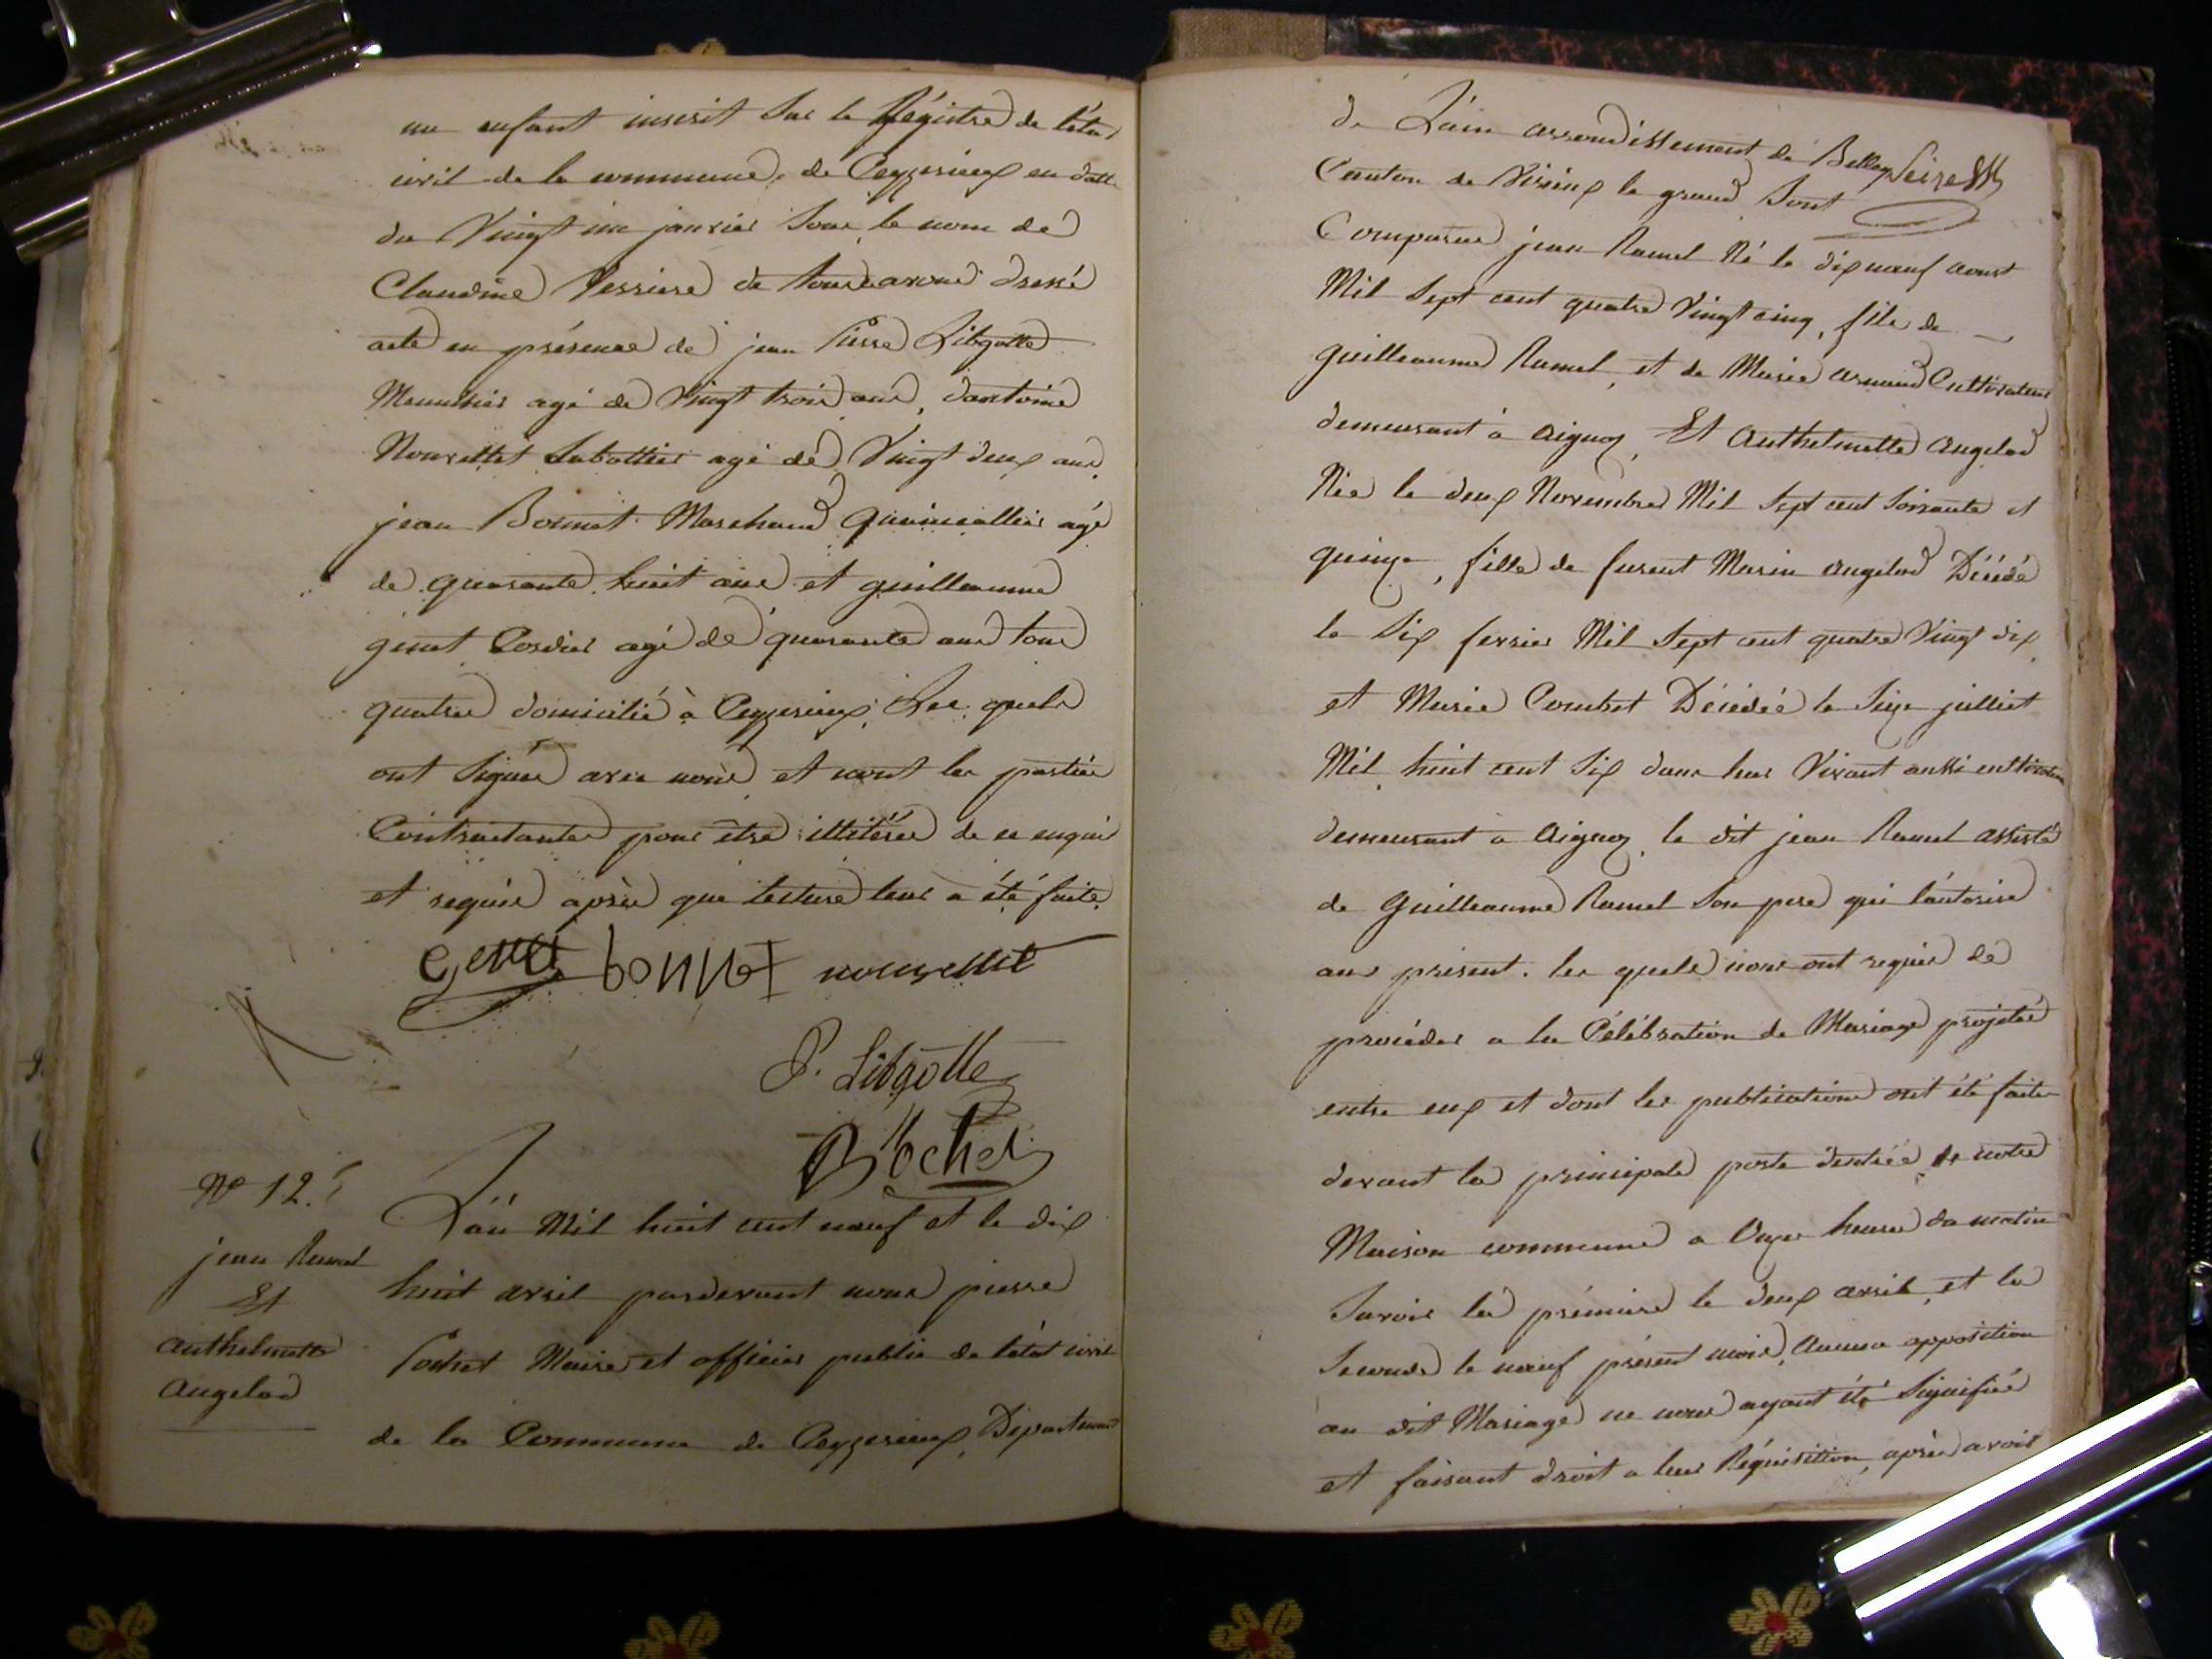 un enfant inscrit Sur le Régistre de l'état
civil de la commune de Ceyzerieux en datte
du Vingt un janvier Sous le nom de
Claudine Perriere de tout avons dressé
acte en présence de jean Pierre Litgolle
Menuisier agé de Vingt trois ans, dantoine
Nourettet Sabottier agé de Vingt deux ans,
jean Bonnet Marchand Quaincallier agé
de quarante huit ans et guilleaume
genet Cordier agé de quarante ans tous
quatres domicilié à Ceyzerieux, Les quels
ont Signés avec nous et nont les parties
Contractantes pour être illitérés de ce enquis
et requis après que lecture leur a été faite.
Genet bonnet nourettet
P. Litgolle
Pochet
N° 12.
jean Ramel
Et
Anthelmette
Angelod
L'an Mil huit cent nœuf et le dix
huit avril pardevant nous pierre
Pochet Maire et officier public de l'état civil
de la Commune de Ceyzerieux, Département
de L'ain arrondissement de Belley Seize
Canton de Virieux le grand Sont
Comparus jean Ramel Né le dix nœuf aoust
Mil Sept cent quatre Vingt cinq, fils de
guilleaume Ramel, et de Marie arnaud Cultivateurs
demeurant à aignoz, Et Anthelmette Angelod
Née le deux Novembre Mil Sept cent Soixante et
quinze, fille de furent Marin angelod Décédé
le Six fevrier Mil Sept cent quatre Vingt dix,
et Marie Combet Décédée le Seize julliet
Mil huit cent Six dans leur Vivant aussi cultivateurs
demeurant a Aignoz, le dit jean Ramel assisté
de Guilleaume Ramel Son pere qui l'autorise
aus présent. les quels nous ont requis de
procéder a la Célébration de Mariage projetté
entre eux et dont les publications ont été faites
devant la principale porte d'entrée de notre
Maison commune a Onze heures du matin
Savoir la prémiere le deux avril, et la
Seconde le nœuf présent mois, Aucune opposition
au dit Mariage ne nous ayant été Signifiée
et faisant droit a leur Réquisition, après avoir